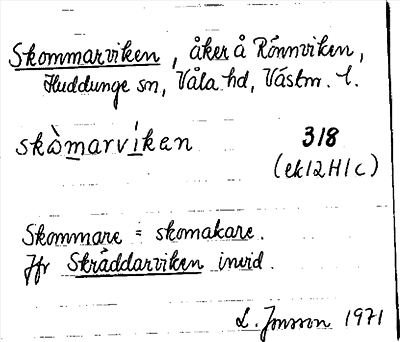 Skommarviken, åker å Rönnviken,
Huddunge sn, Våla hd, Västm. l.
skòmarvíken 318
(ek12H1c)
Skommare = skomakare.
Jfr Skräddarviken invid.
L. Jonsson 1971